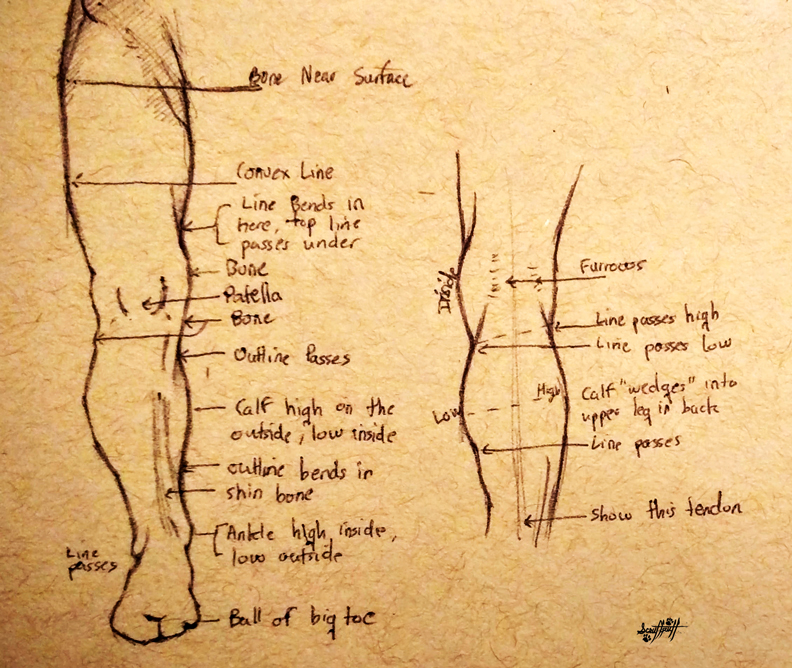 Bone Near Surface
Convex Line
Line Bends in
here, top line
passes under
Bone
Patella
Bone
Outline Passes
Calf high on the
outside, low inside
outline bends in
shin bone
Ankle high inside,
low outside
Line
passes
Ball of big toe
Inside
Furrows
Line passes high
Line passes low
High
Calf "wedges" into
upper leg in back
Low
Line passes
show this tendon